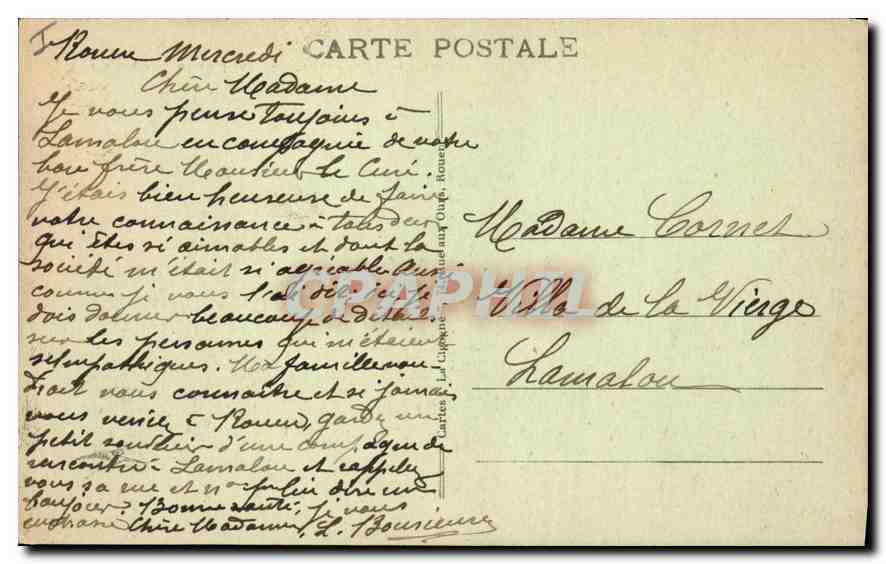 CARTE POSTALE
Rouen Mercredi
Chère Madame
Je vous pense toujours à
Lamalou en compagnie de votre
bon frère Monsieur le Curé.
J'étais bien heureuse de faire
votre connaissance à tous deux
qui êtes si aimables et dont la
société m'était si agréable Aussi
comme je vous l'ai dit je
dois donner beaucoup de détails
sur les personnes qui m'étaient
sympathiques. Ma famille vou-
drait vous connaître et si jamais
vous veniez à Rouen, gardez un
petit souvenir d'une compagne de
rencontre à Lamalou et rappelez
vous sa rue et n° dire un
bonjour. Bonne santé, je vous
embrasse Chère Madame, L.
Cartes " La Cigogne aux Ours, Rouen
Madame Cornet
Villa de la Vierge
Lamalou
CPAPHIL